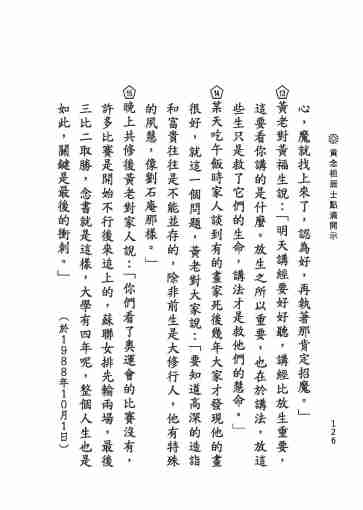 黃念祖居士點滴開示
126
心，魔就找上來了，認為好，再執著那肯定招魔。」
⑬黃老對黃福生說：「明天講經要好好聽，講經比放生重要，
這要看你講的是什麼。放生之所以重要，也在於講法，放這
些生只是救了它們的生命，講法才是救他們的慧命。」
⑭某天吃午飯時家人談到有的畫家死後幾年大家才發現他的畫
很好，就這一個問題，黃老對大家說：「要知道高深的造詣
和富貴往往是不能並存的，除非前生是大修行人，他有特殊
的夙慧，像劉石庵那樣。」
⑮晚上共修後黃老對家人說：「你們看了奧運會的比賽沒有，
許多比賽是開始不行後來追上的，蘇聯女排先輸兩場，最後
三比二取勝，念書就是這樣，大學有四年呢，整個人生也是
如此，關鍵是最後的衝刺。」
（於1988年10月1日）